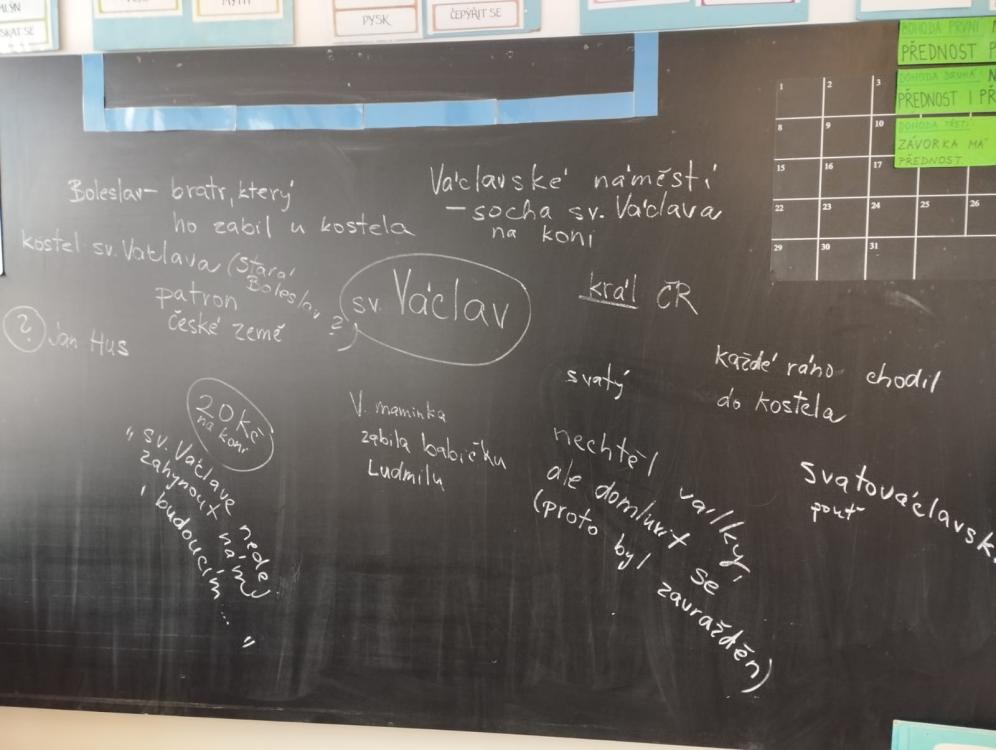 PYSK
ČEPÝŘIT SE
PŘEDNOST
PŘEDNOST I PŘ
DOHODA TŘETÍ
ZÁVORKA MÁ
PŘEDNOST
1 2 3
8 9 10
15 16 17
22 23 24 25 26
29 30 31
Boleslav - bratr, který
ho zabil u kostela
kostel sv. Václava (Stará
Boleslav ?)
patron
české země
? Jan Hus
Václavské náměstí
- socha sv. Václava
na koni
sv. Václav
král ČR
20 Kč
na koni
„sv. Václave nedej
zahynout nám
i budoucím ... "
V. maminka
zabila babičku
Ludmilu
svatý
každé ráno chodil
do kostela
nechtěl války,
ale domluvit se
(proto byl zavražděn)
Svatováclavsk
pouť